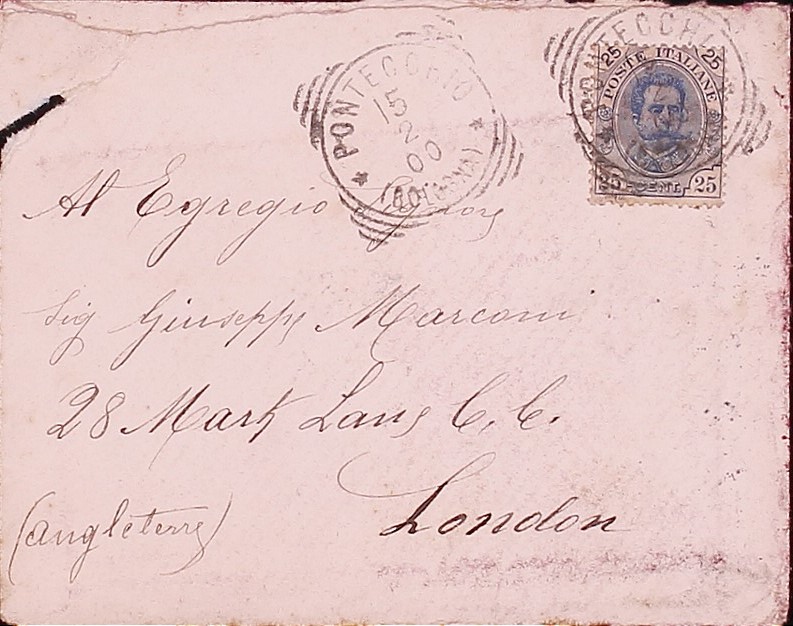 PONTECCHIO
15
2
00
(BOLOGNA)
PONTECCHIO
25 25
POSTE ITALIANE
25 CENT. 25
Al Egregio Signore
Sig Giuseppe Marconi
28 Mark Lane E. C.
London
(Angleterre)